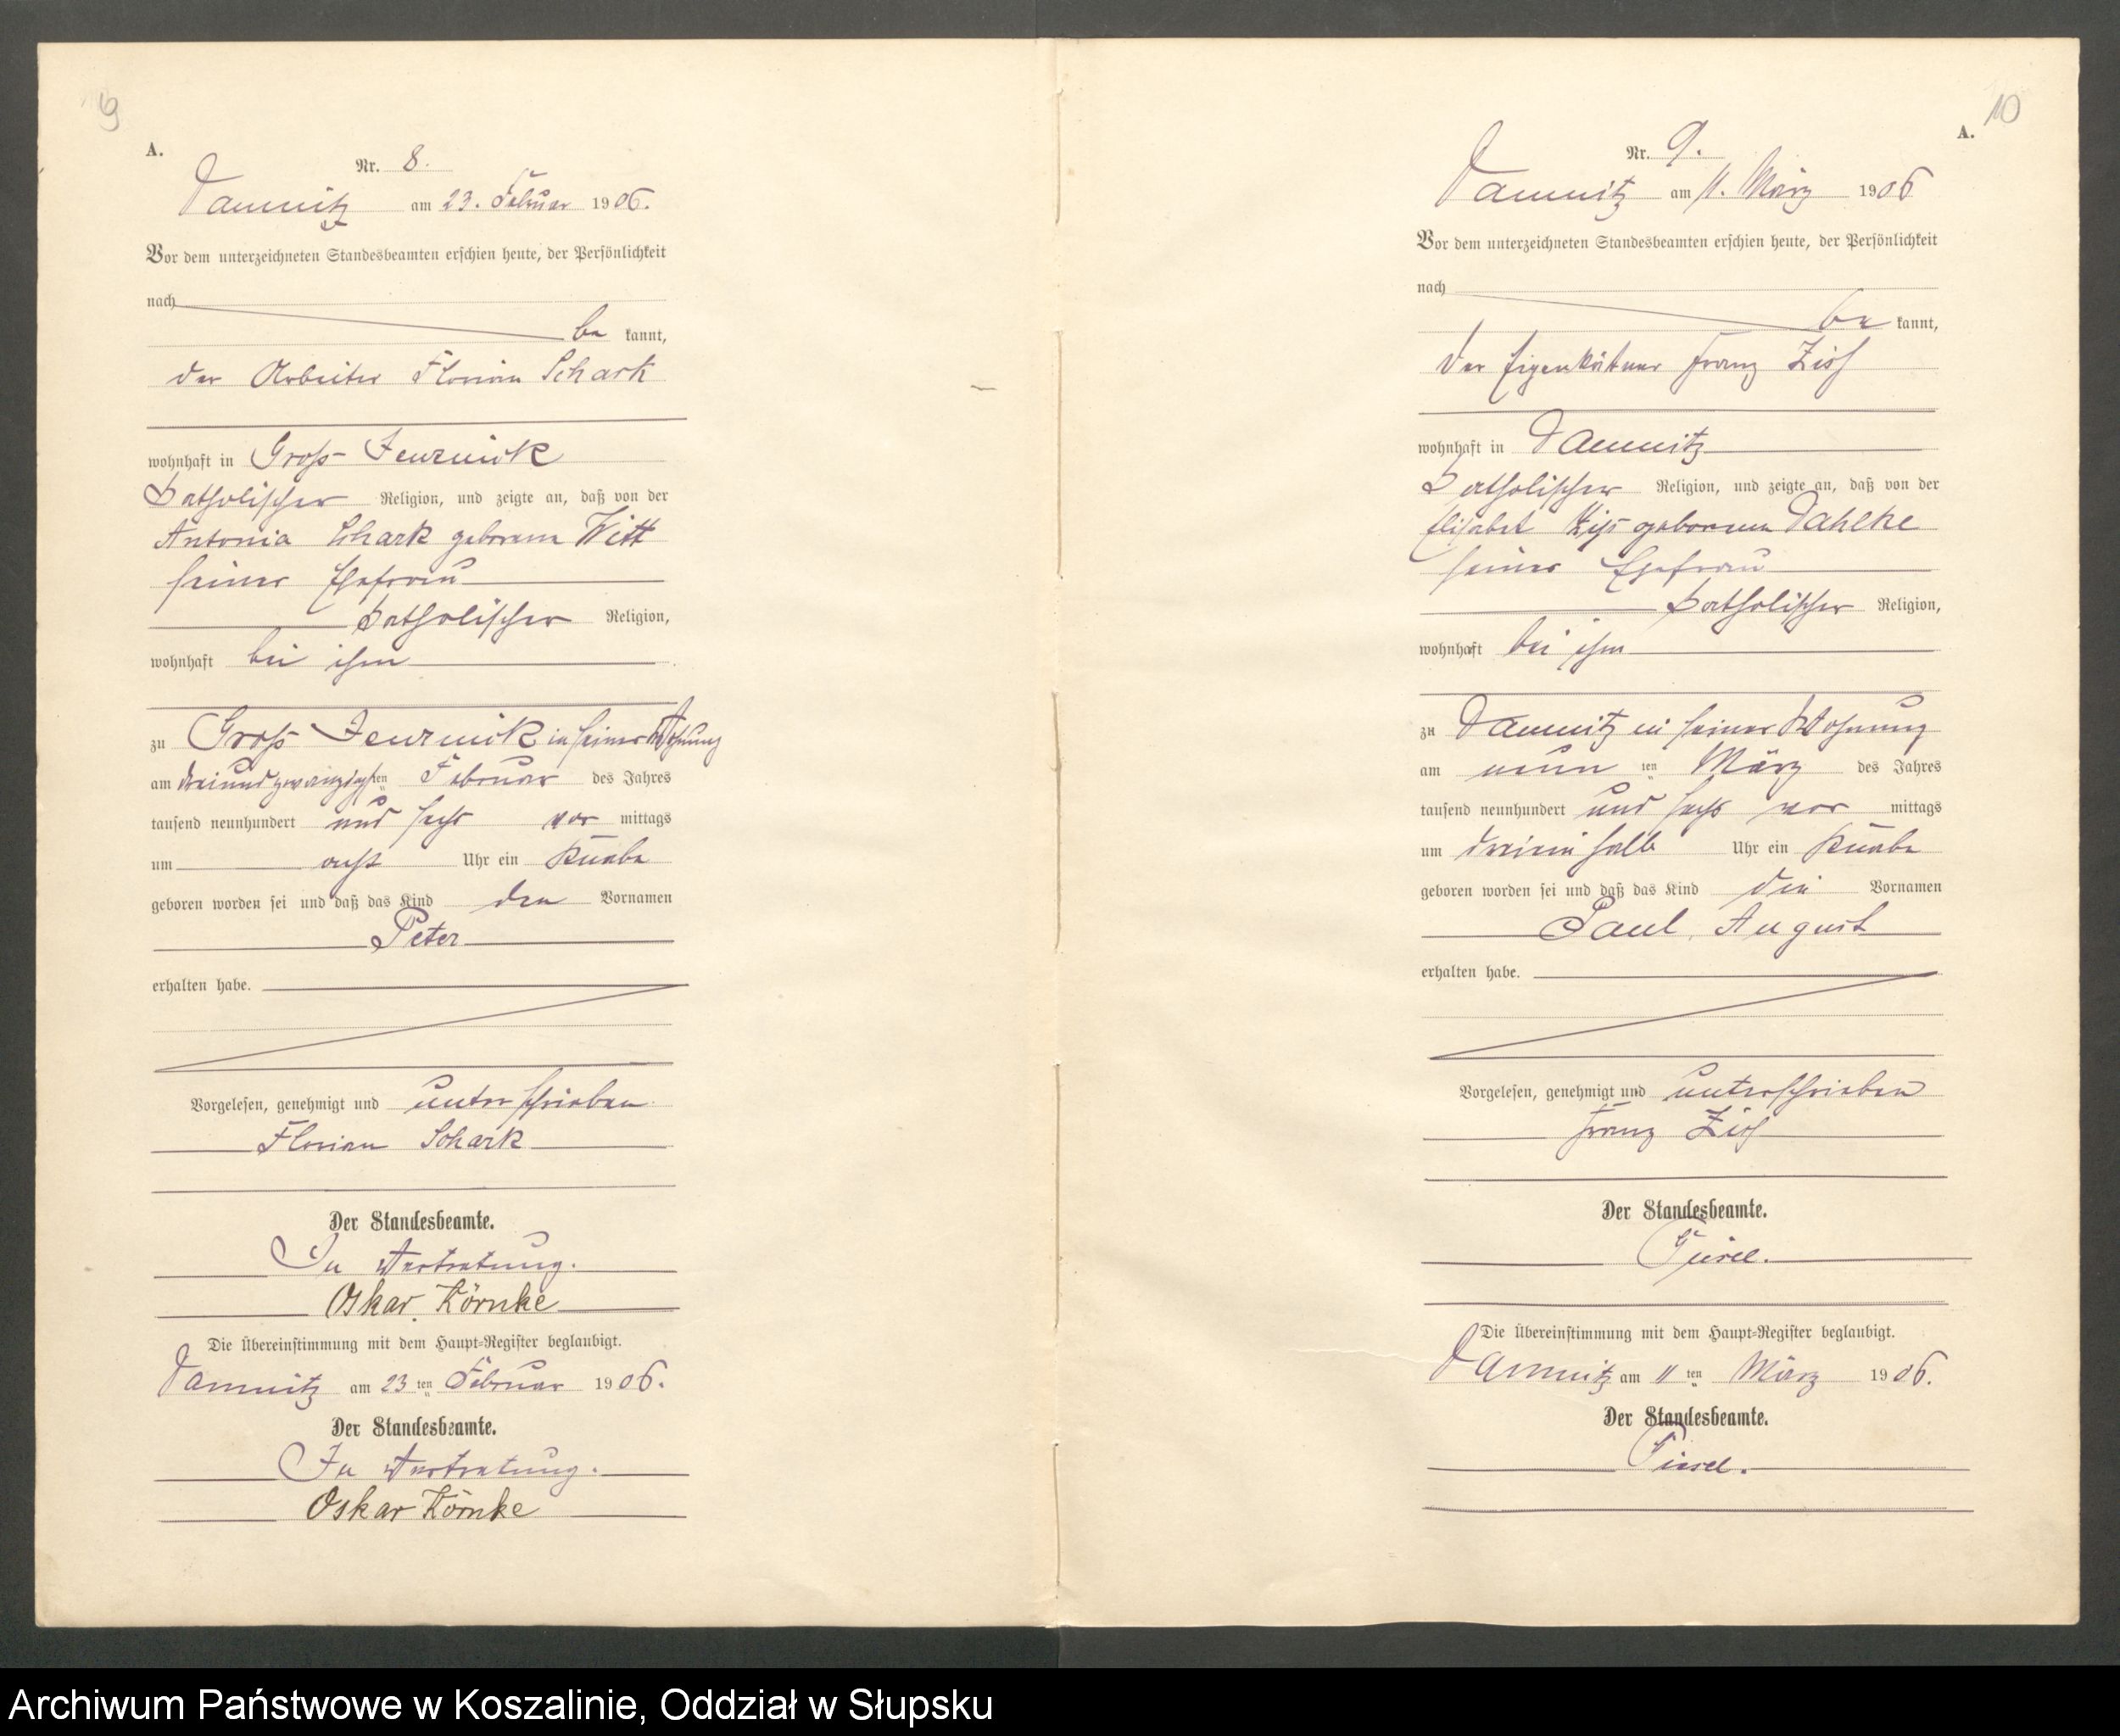 9
A.
Nr. 8.
Damnitz am 23. Februar 1906.
Vor dem unterzeichneten Standesbeamten erschien heute, der Persönlichkeit
nach
be kannt,
der Arbeiter Florian Schark
wohnhaft in Groß-Jenznick
katholischer Religion, und zeigte an, daß von der
Antonia Schark geborene Witt
seiner Ehefrau
katholischer Religion,
wohnhaft bei ihm
zu Groß Jenznick in seiner Wohnung
am dreiundzwanzigsten Februar des Jahres
tausend neunhundert und sechs vor mittags
um acht Uhr ein Knabe
geboren worden sei und daß das Kind den Vornamen
Peter
erhalten habe.
Vorgelesen, genehmigt und unterschrieben
Florian Schark
Der Standesbeamte.
In Vertretung.
Oskar Körnke
Die Übereinstimmung mit dem Haupt-Register beglaubigt.
Damnitz am 23 ten Februar 1906.
Der Standesbeamte.
In Vertretung.
Oskar Körnke
10
A.
Nr. 9.
Damnitz am 11. März 1906
Vor dem unterzeichneten Standesbeamten erschien heute, der Persönlichkeit
nach
be kannt,
der Eigenkätner Franz
wohnhaft in Damnitz
katholischer Religion, und zeigte an, daß von der
Elisabet geborene Dahlke
seiner Ehefrau
katholischer Religion,
wohnhaft bei ihm
zu Damnitz in seiner Wohnung
am neun ten März des Jahres
tausend neunhundert und sechs vor mittags
um dreiein halb Uhr ein Knabe
geboren worden sei und daß das Kind die Vornamen
Paul, August
erhalten habe.
Vorgelesen, genehmigt und unterschrieben
Franz
Der Standesbeamte.
Die Übereinstimmung mit dem Haupt-Register beglaubigt.
Damnitz am 11 ten März 1906.
Der Standesbeamte.
Archiwum Państwowe w Koszalinie, Oddział w Słupsku